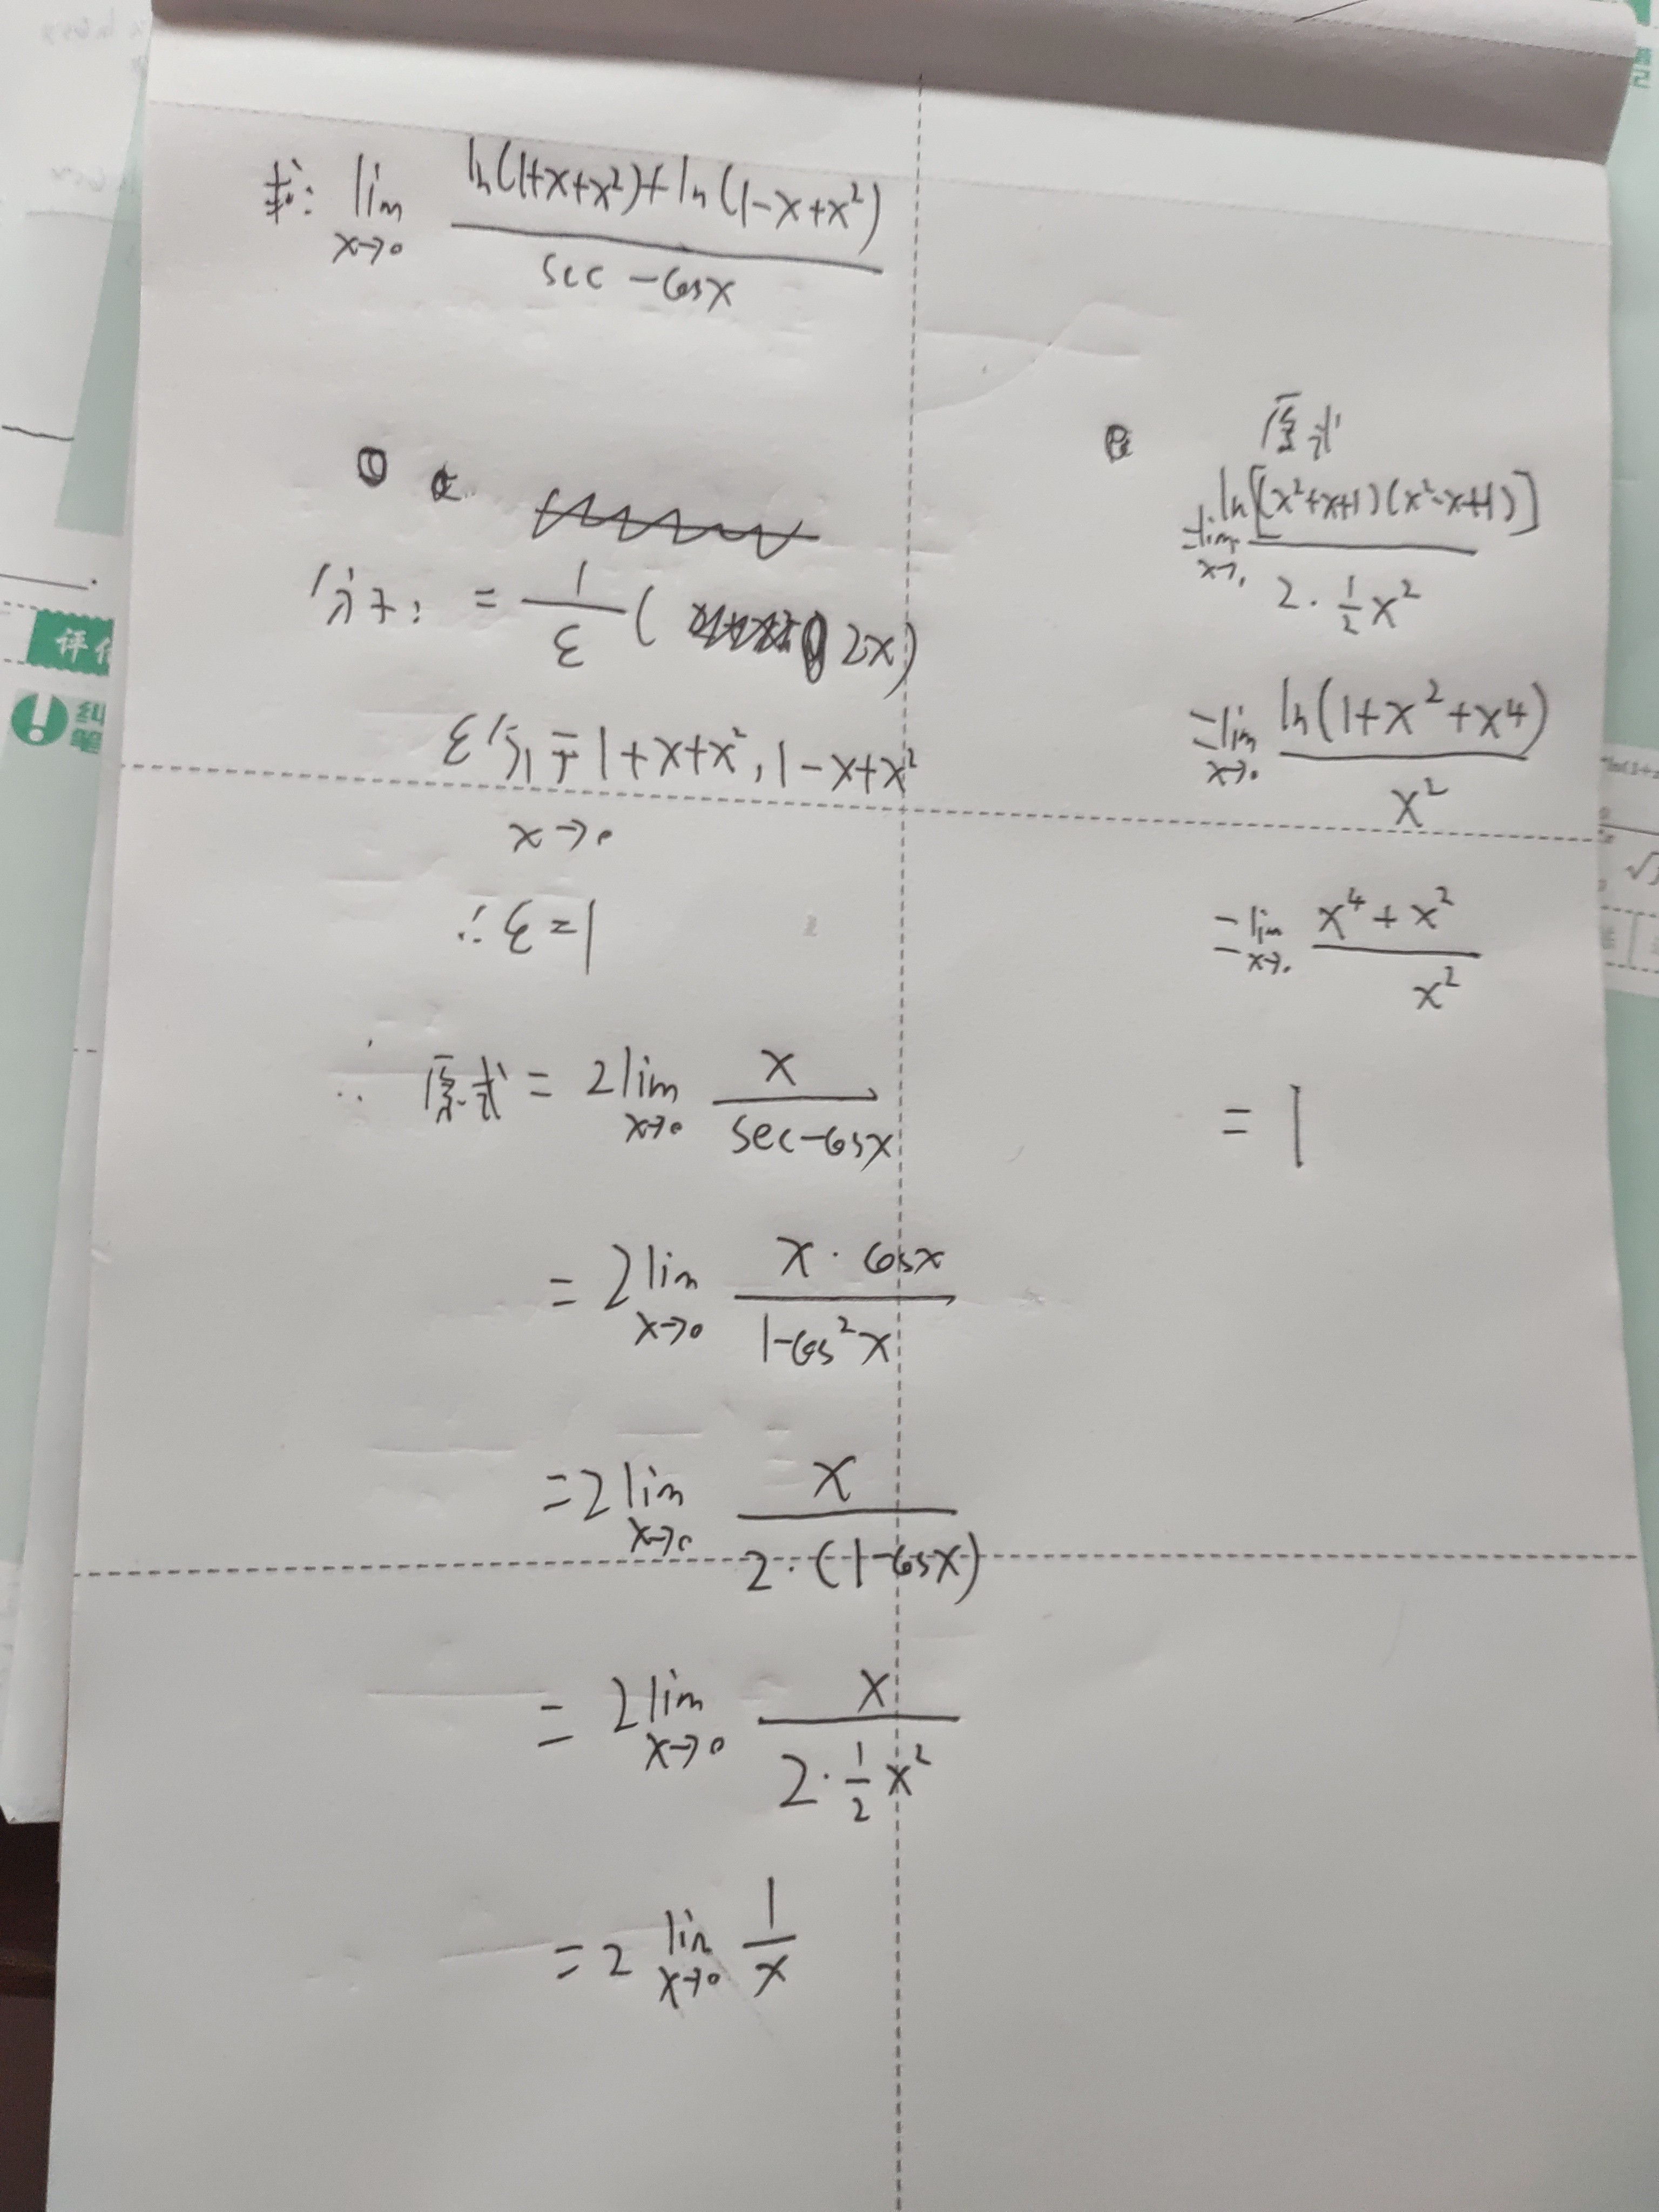 求: lim x→0 (ln(1+x+x²)+ln(1-x+x²))/(sec-cosx)
①
分子: = 1/ξ ( 2x)
ξ介于1+x+x², 1-x+x²
x→0
∴ ξ=1
∴ 原式 = 2lim x→0 x/(sec-cosx)
= 2lim x→0 (x·cosx)/(1-cos²x)
=2lim x→0 x/(2·(1-cosx))
= 2lim x→0 x/(2·½x²)
=2 lim x→0 1/x
②
原式
=lim x→0 ln[(x²+x+1)(x²-x+1)]/(2·½x²)
=lim x→0 ln(1+x²+x⁴)/x²
=lim x→0 (x⁴+x²)/x²
= 1
评
纠
笔